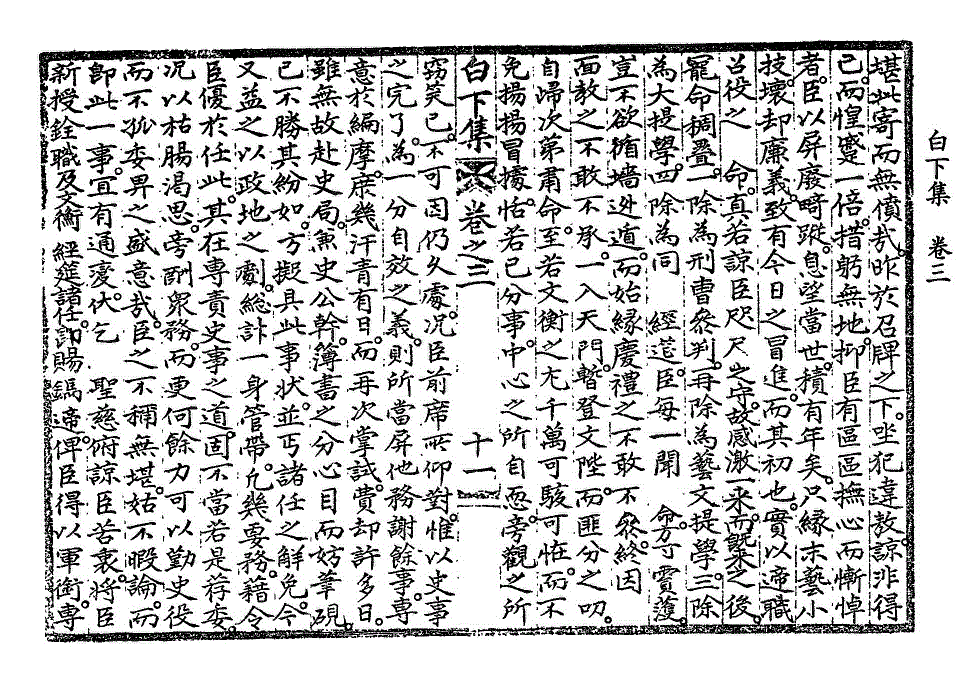 白下集　卷三
堪此寄而無僨哉。昨於召牌之下。坐犯違敖。諒非得
已。而惶蹙一倍。措躬無地。抑臣有區區撫心而慚悼
者。臣以屏廢畸蹤。息望當世。積有年矣。只緣末藝小
技。壞却廉義。致有今日之冒進。而其初也。實以啇職
召役之　命。直若諒臣咫尺之守。故感激一來。而旣來之後。
寵命稠疊。一除為刑曹參判。再除為藝文提學。三除
為大提學。四除為同　經筵。臣每一聞　命。方寸實蒦。
豈不欲循墻逃遁。而始緣慶禮之不敢不參。終因
面敎之不敢不承。一入天門。暫登文陛。而匪分之叨。
自歸次第肅命。至若文衡之尤千萬可駭可恠。而不
免揚揚冒據。恬若已分事。中心之所自恧。旁觀之所
白下集　卷之三　十一
竊笑。已不可因仍久處。况臣前席所仰對。惟以史事
之完了。為一分自效之義。則所當屏他務謝餘事。專
意於編摩。庶幾汗青有日。而再次掌試。費却許多日。
雖無故赴史局。兼史公幹。簿書之分心目而妨筆硯。
已不勝其紛如。方擬具此事狀。並丐諸任之解免。今
又益之以政地之劇。總計一身管帶。凡幾要務。藉令
臣優於任此。其在專責史事之道。固不當若是荐委。
况以枯腸渴思。旁酬衆務。而更何餘力可以勤史役
而不孤委畀之盛意哉。臣之不稱無堪。姑不暇論。而
卽此一事。宜有通變。伏乞　聖慈俯諒臣苦衷。將臣
新授銓職及文衡　經筵諸任。卽賜鐫啇。俾臣得以軍銜。專